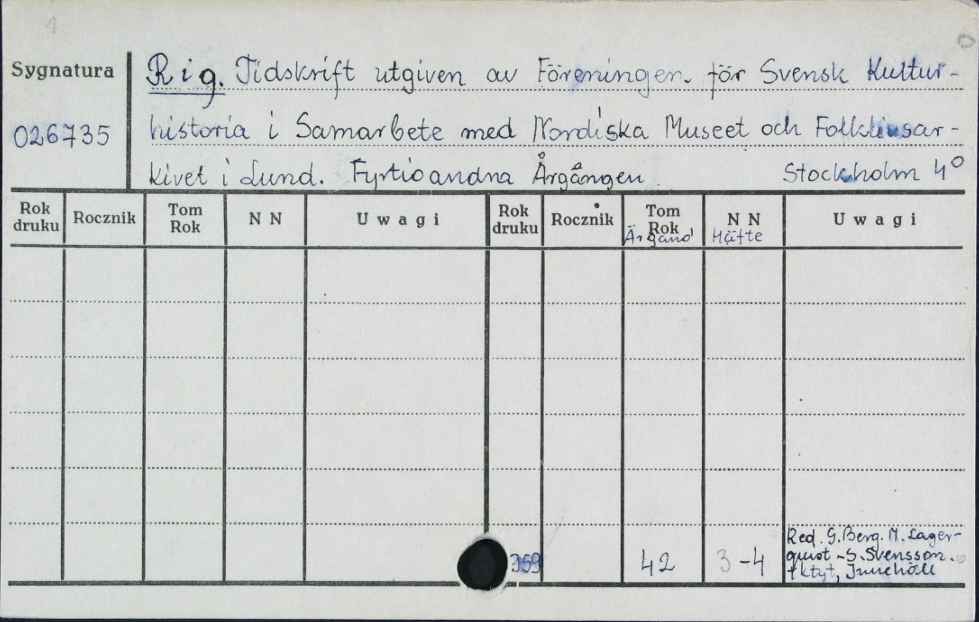 Sygnatura
026735
Rig. Tidskrift utgiven av Föreningen för Svensk Kultur-
historia i Samarbete med Nordiska Museet och Folklivsar-
kivet i Lund. Fyrtioandra Årgången Stockholm 4°
Rok druku Rocznik Tom Rok N N Uwagi Rok druku Rocznik Tom Rok N N Uwagi
Årgang Häfte
Red. G. Berg. M. Lager-
quist - S. Svensson.
959 42 3-4 + ktyt, Innehåll